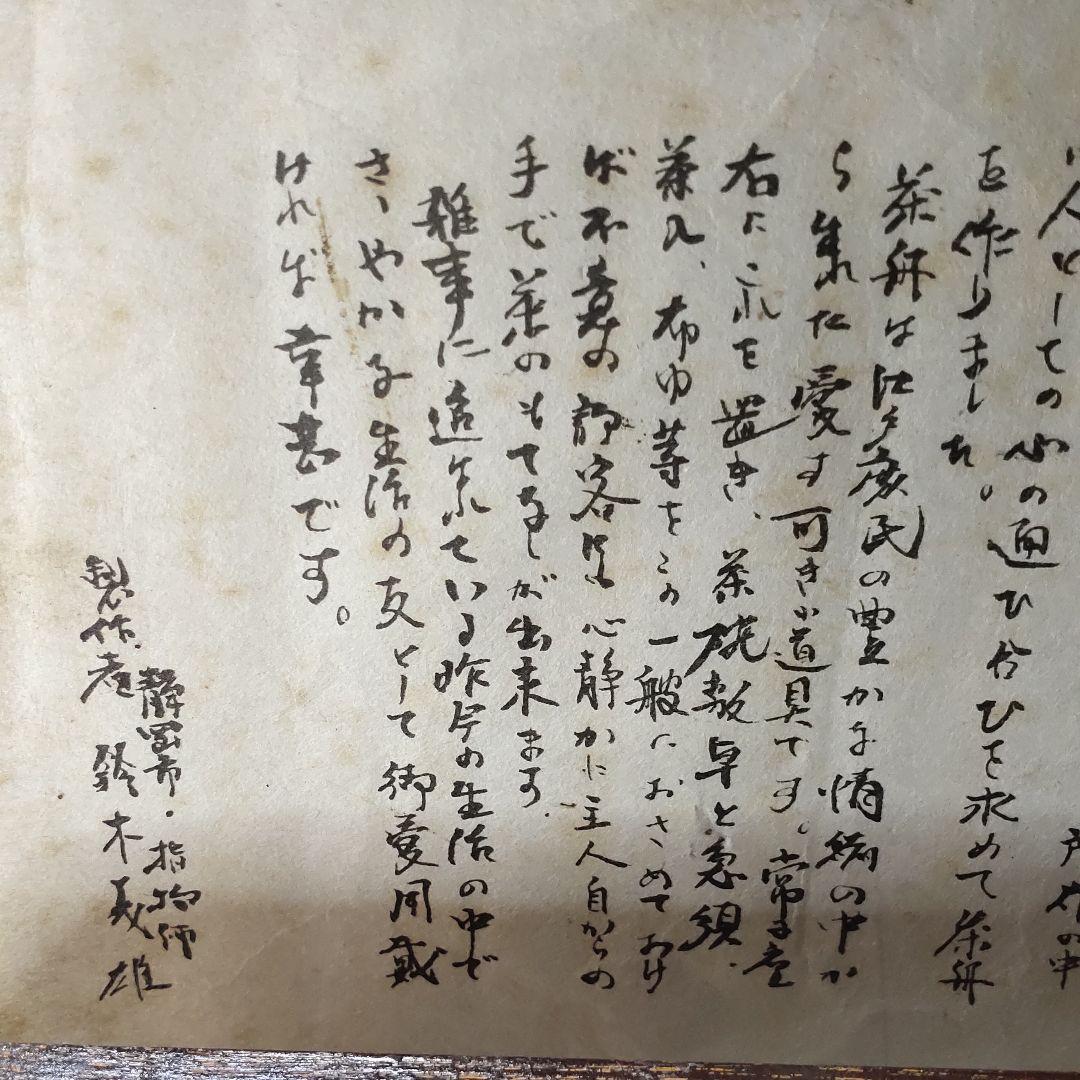 人としての心の通ひ合ひを求めて茶舟
を作りました。
茶舟は江戸庶民の豊かな情緒の中か
ら生れた愛す可き小道具です。常に座
右にこれを置き、茶碗数卓と急須、
茶入、布巾等をこの一艘におさめておけ
ば不意の訪客にも心静かに主人自からの
手で茶のもてなしが出来ます。
雑事に追はれている昨今の生活の中で
さゝやかな生活の友として御愛用戴
ければ幸甚です。
静岡市・指物師
製作者 鈴木義雄